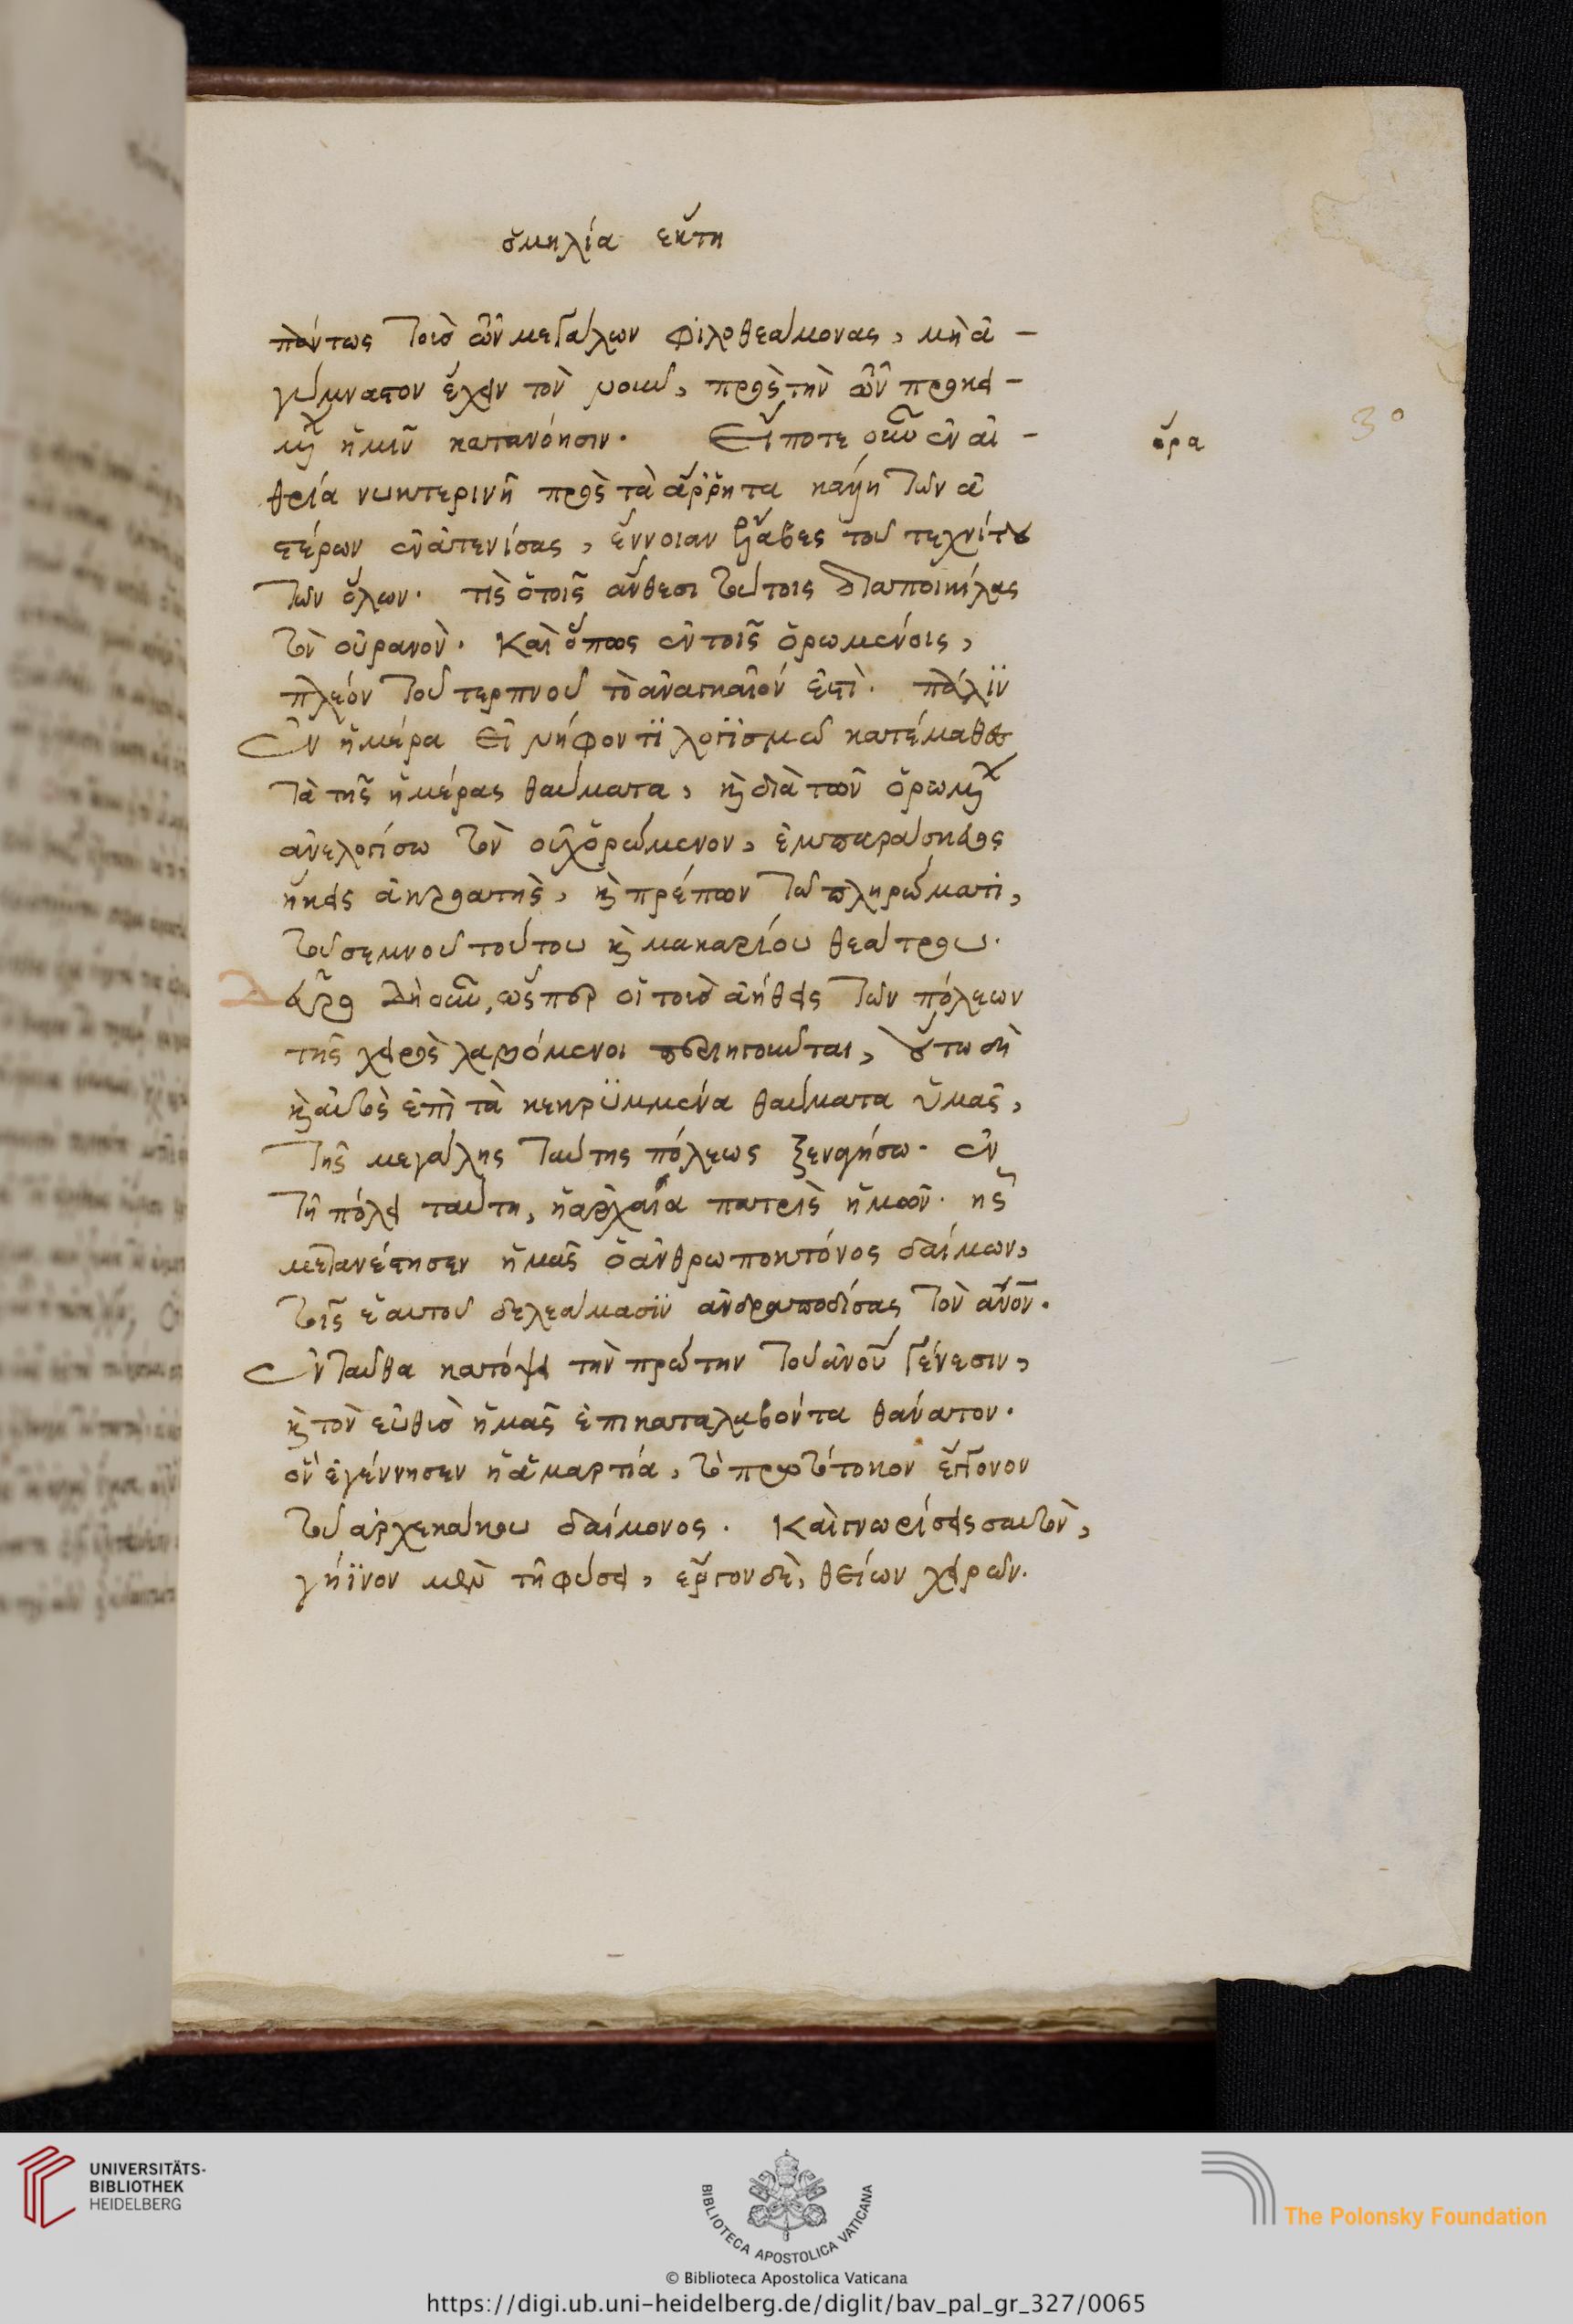 ὁμηλία εκτη
πάντως τοὺσ τῶν μεγάλων φιλοθεάμονας, μὴ ἀ-
γύμναστον ἔχειν τὸν νοῦν, πρὸς τὴν τῶν προκει-
μένων ἡμῖν κατανόησιν. Εἴ ποτε οὖν ἐν αἰ-
ὅρα
θρία νυκτερινῆ πρὸς τὰ ἄρρητα κάλλη τῶν ἀ
στέρων ἐνατενίσας, ἔννοιαν ἔλαβες τοῦ τεχνίτου
τῶν ὅλων. τίς ὁ τοῖς ἄνθεσι τούτοις διαποικίλας
τὸν οὐρανὸν. Καὶ ὅπως ἐν τοῖς ὁρωμένοις,
πλέον τοῦ τερπνοῦ τὸ ἀναγκαῖόν ἐστὶ. πάλϊν
Ἐν ἡμέρα εἰ νήφοντϊ λογϊσμῶ κατέμαθες
τὰ τῆς ἡμέρας θαύματα, καὶ διὰ τῶν ὁρωμένων
ἀνελογίσω τὸν οὐχ ὁρώμενον,
ἥκεις ἀκροατὴς, καὶ πρέπων τῶ πληρώματι,
τοῦ σεμνοῦ τούτου καὶ μακαρίου θεάτρου.
Δεῦρο δὴ οὖν, ὥσπερ οἱ τοὺσ ἀήθεις τῶν πόλεων
τῆς χειρὸς λαβόμενοι περιηγοῦνται, οὕτω δὴ
καὶ αὐτὸς ἐπὶ τὰ κεκρϋμμένα θαύματα ὑμᾶς,
τῆς μεγάλης ταύτης πόλεως ξεναγήσω. ἐν
τῆ πόλει ταύτη, ἡ ἀρχαία πατρὶς ἡμῶν. ἧς
μετανέστησεν ἡμᾶς ὁ ἀνθρωποκτόνος δαίμων,
τοῖς ἑαυτοῦ δελεάμασϊν ἀνδραποδίσας τὸν ἄνον.
Ἐνταῦθα κατόψει τὴν πρώτην τοῦ ἀνου γένεσιν,
καὶ τὸν εὐθὺσ ἡμᾶς ἐπικαταλαβόντα θάνατον.
ὃν ἐγέννησεν ἡ ἁμαρτία, τὸ πρωτότοκον ἔκγονον
τοῦ ἀρχεκάκου δαίμονος. Καὶ γνωρίσεις σαυτὸν,
γήϊνον μὲν τῆ φύσει, ἔργον δὲ, θείων χειρῶν.
3º
UNIVERSITÄTS-
BIBLIOTHEK
HEIDELBERG
BIBLIOTECA APOSTOLICA VATICANA
The Polonsky Foundation
© Biblioteca Apostolica Vaticana
https://digi.ub.uni-heidelberg.de/diglit/bav_pal_gr_327/0065